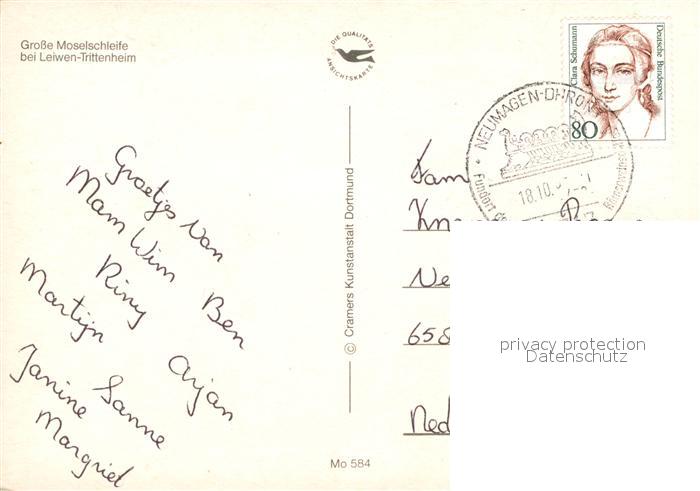 Große Moselschleife
bei Leiwen-Trittenheim
DIE QUALITÄTS
ANSICHTSKARTE
Clara Schumann
Deutsche Bundespost
80
NEUMAGEN-DHRON
Fundort
18.10.
Groetjes van
Mam Wim Ben
Riny Arjan
Martijn Sanne
Janine
Margriet
© Cramers Kunstanstalt Dortmund
Fam
Ne
658
Ned
privacy protection
Datenschutz
Mo 584